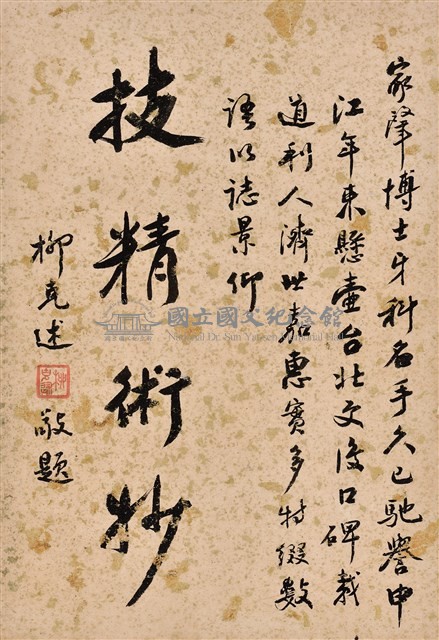 家肇博士牙科名手久已馳譽申
江年來懸壺台北復口碑載
道利人濟世嘉惠實多特綴數
語以誌景仰
技精術妙
柳克述
敬題
國立國父紀念館
National Dr. Sun Yat-sen Memorial Hall